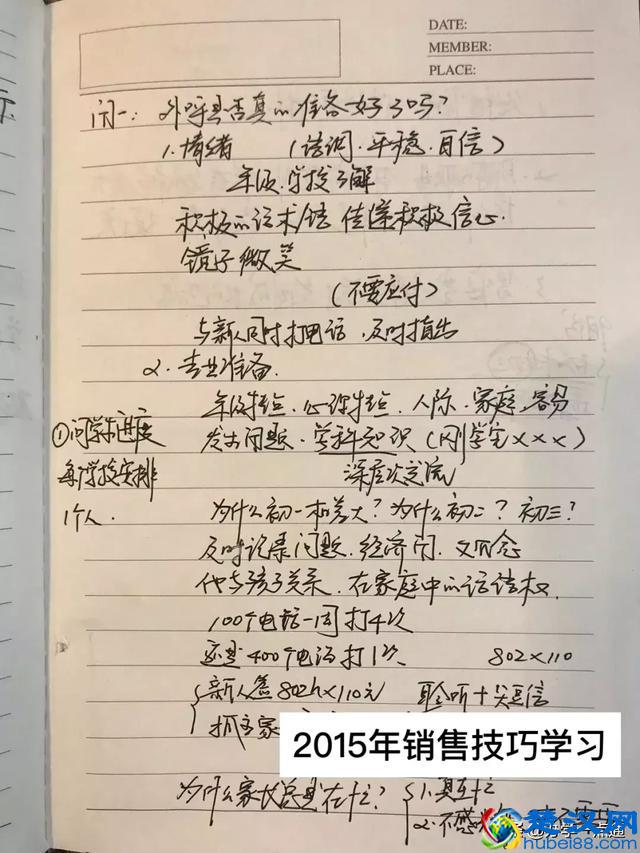 DATE:
MEMBER:
PLACE:
问一:外呼是否真的准备好了吗?
1.情绪 (语调.平稳.自信)
年级.学校了解
积极的话术/语 传递积极信心.
镜子微笑
(不要应付)
与新人同时打电话,及时指出
2.专业准备.
年级特征.心理特征.人际.家庭.容易
发生问题.学科知识(刚学完xxx)
深层次交流
①问学生进度
每个学校安排
1个人.
为什么初一相差大?为什么初二?初三?
及时记录问题.经济问.文
他与孩子关系.在家庭中的话语权.
100个电话一周打4次
还是400个电话打1次 802×110
新人 802h×110元 聆听+关信
抓主家
2015年销售技巧学习
为什么家长总是在忙?
1.真在忙
2.不感
楚汉网
hubei88.com